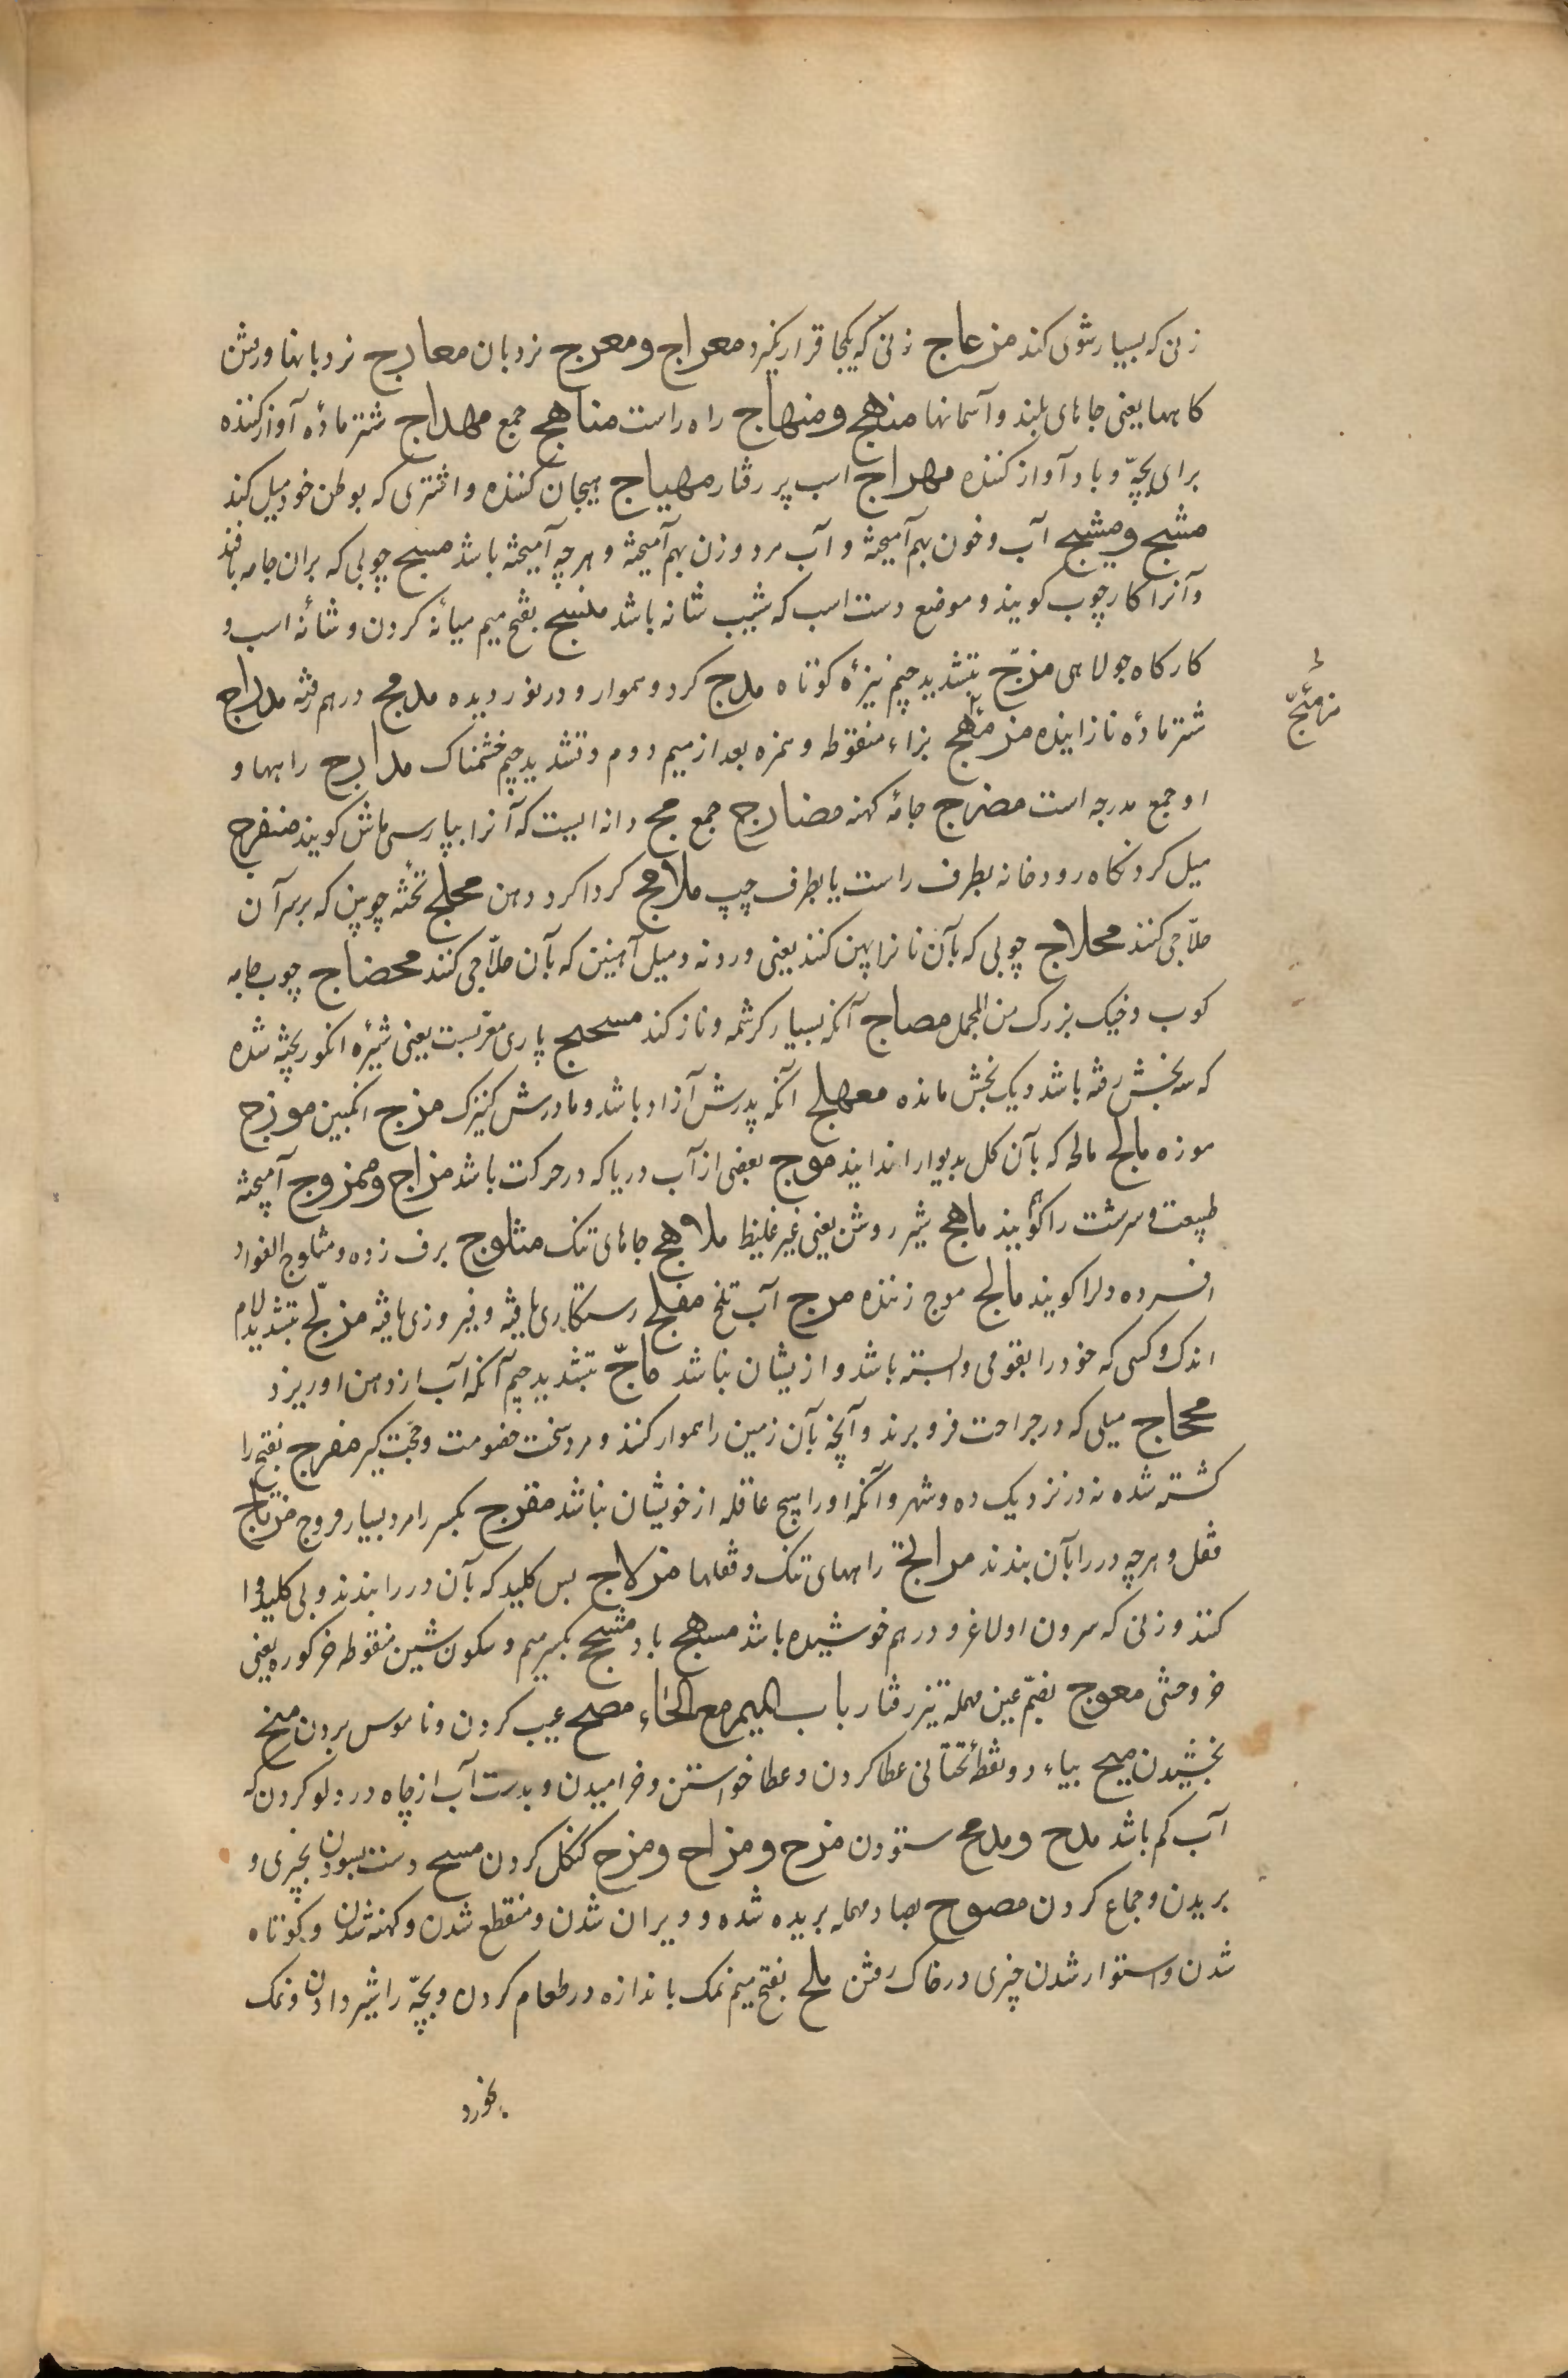 زنی که بسیار شوی کند مزعاج زنی که یکجا قرار نگیرد معراج و معرج نردبان معارج نردبانها و رفتن
کاهها یعنی جاهای بلند و آسمانها منهج و منهاج راه راست مناهج جمع مهداج شتر مادٔه آواز کننده
برای بچّه و باد آواز کننده مهراج اسب پر رفتار مهیاج هیجان کننده و اشتری که بوطن خود میل کند
مشج و مشیج آب و خون بهم آمیخته و آب مرد و زن بهم آمیخته و هر چه آمیخته باشد منسج چوبی که بران جامه بافند
و آنرا کارچوب کویند و موضع دست اسب که شیب شانه باشد منسج بفتح میم میانٔه کردن و شانٔه اسب و
کارکاه جولاهی مزجّ بتشدید جیم نیزٔه کوتاه مدرج کرد و هموار و درنوردیده مدمج درهم رفته مدراج
شتر مادٔه نازاینده مزمئج بزاء منقوطه و همزه بعد از میم دوم و تشدید جیم خشمناک مدارج راهها و
او جمع مدرجه است مضرج جامٔه کهنه مضارج جمع مج دانه ایست که آنرا بپارسی ماش کویند منفرج
میل کردنکاه رودخانه بطرف راست یا بطرف چپ ملامج کرداکرد دهن محلج تختٔه چوبین که بر سر آن
حلّاجی کنند محلاج چوبی که بآن نانرا پهن کنند یعنی وردنه و میل آهنین که بآن حلّاجی کنند محضاج چوب جامه
کوب و خیک بزرک من المجمل مصاج آنکه بسیار کرشمه و ناز کند مسحج پاری معرّبست یعنی شیرٔه انکور پخته شده
که سه بخش رفته باشد و یک بخش مانده معهلج آنکه پدرش آزاد باشد و مادرش کنیزک مزج انکبین موزج
موزه مالج ماله که بآن کل بدیوار اندایند موج بعضی از آب دریا که در حرکت باشد مزاج و ممزوج آمیخته
طبیعت و سرشت را کویند ماهج شیر روشن یعنی غیر غلیظ ملاهج جاهای تنک مثلوج برف زده و مثلوج الفواد
افسرده دلرا کویند مالج موج زننده مرج آب تلخ مفلج رستکاری یافته و فیروزی یافته مزلّج بتشدید لام
اندک و کسی که خود را بقومی وابسته باشد و ازیشان نباشد ماجّ بتشدید جیم آنکه آب از دهن او ریزد
محجاج میلی که در جراحت فرو برند و آنچه بآن زمین را هموار کنند و مرد سخت خصومت و حجت کیر مفرج بفتح را
کشته شده نه در نزدیک ده و شهر و آنکه او را هیچ عاقله از خویشان نباشد مفرج بکسر را مرد بسیار فروج مزتاج
قفل و هر چه در را بآن بندند مراتج راههای تنک و قفلها مزلاج پس کلید که بآن در را بندند و بی کلید وا
کنند و زنی که سرون او لاغر و درهم خوشیده باشد مسهج باد مشحج بکسر میم و سکون شین منقوطه خر کوره یعنی
خر وحشی معوج بضمّ عین مهمله تیز رفتار باب المیم مع الحاء مصح عیب کردن و ناموس بردن منح
بخشیدن میح بیاء دو نقطٔه تحتانی عطا کردن و عطا خواستن و خرامیدن و بدست آب از چاه در دلو کردن که
آب کم باشد مدح و مدح ستودن مزح و مزاح و مزح کنکل کردن مسح دست بسودن بچیزی و
بریدن و جماع کردن مصوح بصاد مهمله بریده شده و ویران شدن و منقطع شدن و کهنه شدن و کوتاه
شدن و استوار شدن چیزی در خاک رفتن ملح بفتح میم نمک باندازه در طعام کردن و بچّه را شیر دادن و نمک
بخورد
مزمئجّ